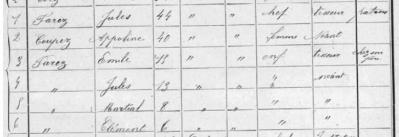 1 Farez Jules 44 " " chef tisseur patron
2 Coupez Appoline 40 " " femme Néant
3 Farez Emile 15 " " enf tisseur chez son père
4 " Jules 13 " " " néant
5 " Martial 8 " " " "
6 " Clément 6 " " " "